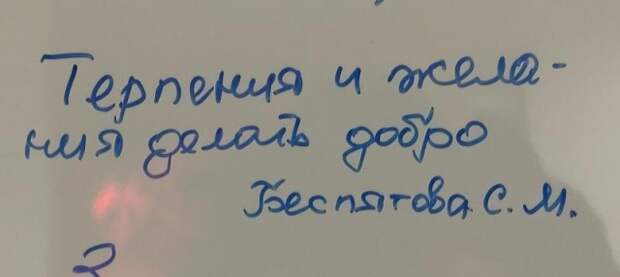 Терпения и жела-
ния делать добро
Беспятова С.М.